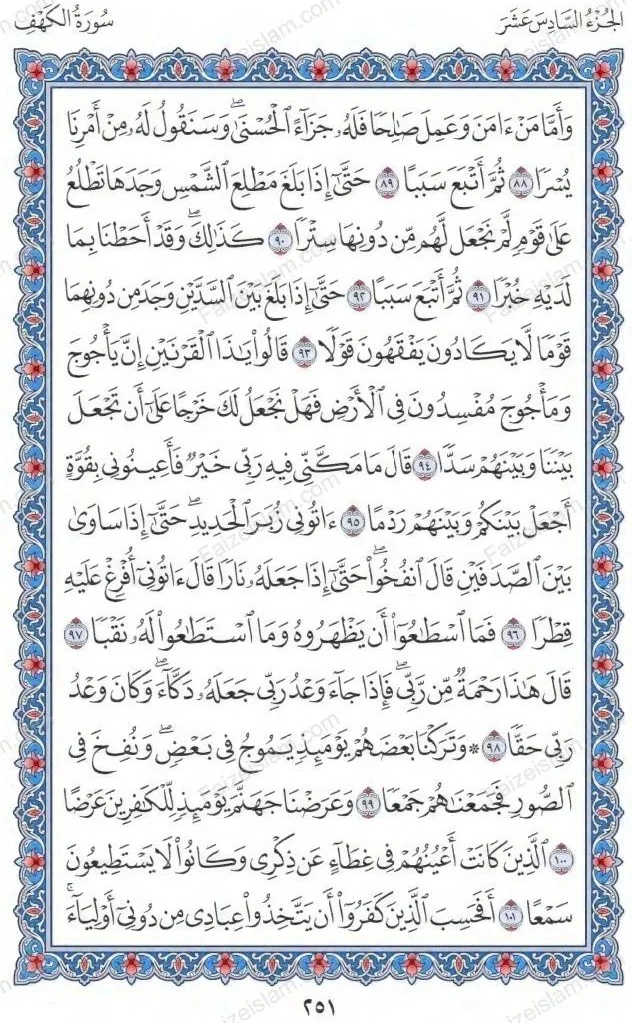 الجُزْءُ السَّادِسَ عَشَرَ
سُورَةُ الكَهْفِ
وَأَمَّا مَنْ ءَامَنَ وَعَمِلَ صَٰلِحًا فَلَهُۥ جَزَآءً ٱلْحُسْنَىٰۖ وَسَنَقُولُ لَهُۥ مِنْ أَمْرِنَا
يُسْرًا ٨٨ ثُمَّ أَتْبَعَ سَبَبًا ٨٩ حَتَّىٰٓ إِذَا بَلَغَ مَطْلِعَ ٱلشَّمْسِ وَجَدَهَا تَطْلُعُ
عَلَىٰ قَوْمٍ لَّمْ نَجْعَل لَّهُم مِّن دُونِهَا سِتْرًا ٩٠ كَذَٰلِكَۖ وَقَدْ أَحَطْنَا بِمَا
لَدَيْهِ خُبْرًا ٩١ ثُمَّ أَتْبَعَ سَبَبًا ٩٢ حَتَّىٰٓ إِذَا بَلَغَ بَيْنَ ٱلسَّدَّيْنِ وَجَدَ مِن دُونِهِمَا
قَوْمًا لَّا يَكَادُونَ يَفْقَهُونَ قَوْلًا ٩٣ قَالُوا۟ يَٰذَا ٱلْقَرْنَيْنِ إِنَّ يَأْجُوجَ
وَمَأْجُوجَ مُفْسِدُونَ فِى ٱلْأَرْضِ فَهَلْ نَجْعَلُ لَكَ خَرْجًا عَلَىٰٓ أَن تَجْعَلَ
بَيْنَنَا وَبَيْنَهُمْ سَدًّا ٩٤ قَالَ مَا مَكَّنِّى فِيهِ رَبِّى خَيْرٌ فَأَعِينُونِى بِقُوَّةٍ
أَجْعَلْ بَيْنَكُمْ وَبَيْنَهُمْ رَدْمًا ٩٥ ءَاتُونِى زُبَرَ ٱلْحَدِيدِۖ حَتَّىٰٓ إِذَا سَاوَىٰ
بَيْنَ ٱلصَّدَفَيْنِ قَالَ ٱنفُخُوا۟ۖ حَتَّىٰٓ إِذَا جَعَلَهُۥ نَارًا قَالَ ءَاتُونِىٓ أُفْرِغْ عَلَيْهِ
قِطْرًا ٩٦ فَمَا ٱسْطَٰعُوٓا۟ أَن يَظْهَرُوهُ وَمَا ٱسْتَطَٰعُوا۟ لَهُۥ نَقْبًا ٩٧
قَالَ هَٰذَا رَحْمَةٌ مِّن رَّبِّىۖ فَإِذَا جَآءَ وَعْدُ رَبِّى جَعَلَهُۥ دَكَّآءَۖ وَكَانَ وَعْدُ
رَبِّى حَقًّا ٩٨ ۞ وَتَرَكْنَا بَعْضَهُمْ يَوْمَئِذٍ يَمُوجُ فِى بَعْضٍۖ وَنُفِخَ فِى
ٱلصُّورِ فَجَمَعْنَٰهُمْ جَمْعًا ٩٩ وَعَرَضْنَا جَهَنَّمَ يَوْمَئِذٍ لِّلْكَٰفِرِينَ عَرْضًا
١٠٠ ٱلَّذِينَ كَانَتْ أَعْيُنُهُمْ فِى غِطَآءٍ عَن ذِكْرِى وَكَانُوا۟ لَا يَسْتَطِيعُونَ
سَمْعًا ١٠١ أَفَحَسِبَ ٱلَّذِينَ كَفَرُوٓا۟ أَن يَتَّخِذُوا۟ عِبَادِى مِن دُونِىٓ أَوْلِيَآءَۚ
٢٥١
Faizeislam.com